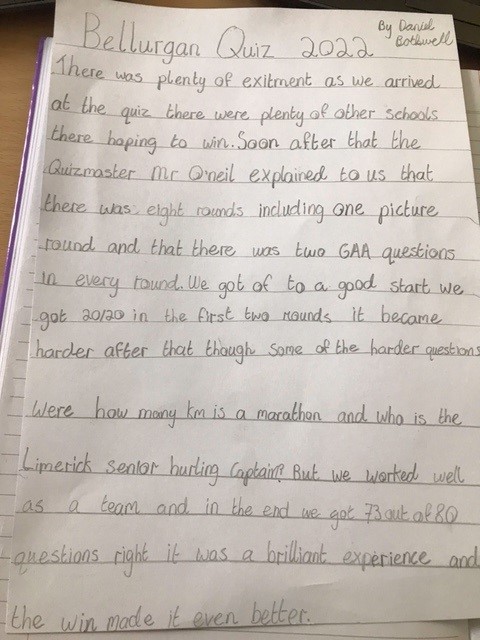 Bellurgan Quiz 2022
By Daniel
Bothwell
There was plenty of exitment as we arrived
at the quiz there were plenty of other schools
there hoping to win. Soon after that the
Quizmaster Mr O'neil explained to us that
there was eight rounds including one picture
round and that there was two GAA questions
in every round. We got of to a good start we
got 20/20 in the first two rounds it became
harder after that though some of the harder questions
Were how many km is a marathon and who is the
Limerick senior hurling Captain? But we worked well
as a team and in the end we got 73 out of 80
questions right it was a brilliant experience and
the win made it even better.